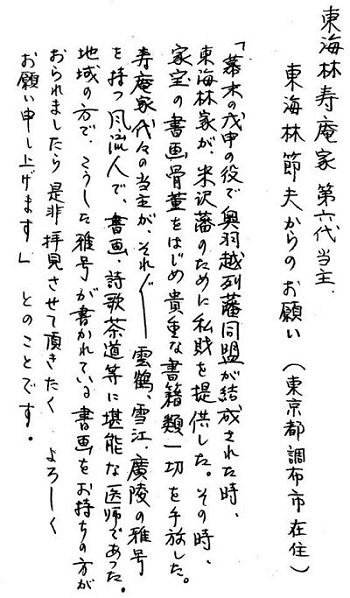 東海林寿庵家 第六代当主、
東海林節夫からのお願い (東京都調布市在住)
「幕末の戊申の役で奥羽越列藩同盟が結成された時、
東海林家が、米沢藩のために私財を提供した。その時、
家宝の書画骨董をはじめ貴重な書籍類一切を手放した。
寿庵家代々の当主が、それぞれ 雲鶴、雪江、廣陵の雅号
を持つ風流人で、書画、詩歌茶道等に堪能な医師であった。
地域の方で、こうした雅号が書かれている書画をお持ちの方が
おられましたら是非拝見させて頂きたく よろしく
お願い申し上げます」 とのことです。